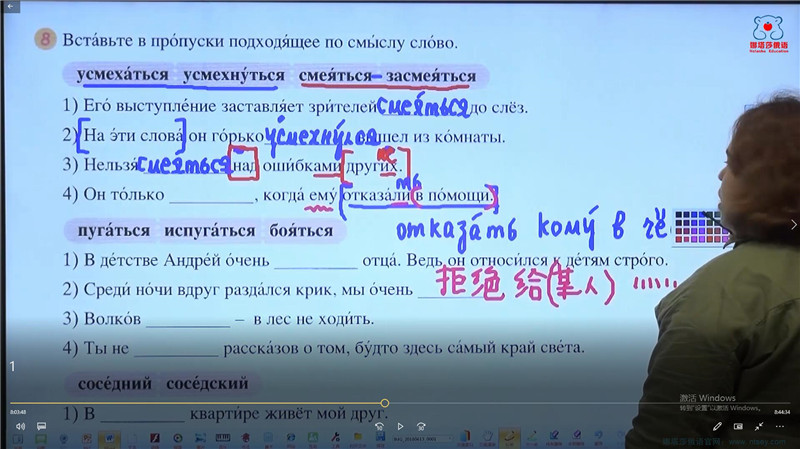 8 Вста́вьте в про́пуски подходя́щее по смы́слу сло́во.
娜塔莎俄语
усмеха́ться усмехну́ться смея́ться – засмея́ться
1) Его́ выступле́ние заставля́ет зри́телей смея́ться до слёз.
2) На э́ти слова́ он го́рько усмехну́лся шел из ко́мнаты.
3) Нельзя́ смея́ться над оши́бками други́х.
ть
4) Он то́лько __________, когда́ ему́ отказа́ли в по́мощи.
отказа́ть кому́ в чё
пуга́ться испуга́ться боя́ться
1) В де́тстве Андре́й о́чень __________ отца́. Ведь он относи́лся к де́тям стро́го.
2) Среди́ но́чи вдруг разда́лся крик, мы о́чень
拒绝 给(某人) ......
3) Волко́в __________ – в лес не ходи́ть.
4) Ты не __________ расска́зов о том, бу́дто здесь са́мый край све́та.
1
сосе́дний сосе́дский
激活 Windows
转到"设置"以激活 Windows。
0:03:48
0:44:34
1) В __________ кварти́ре живёт мой друг.